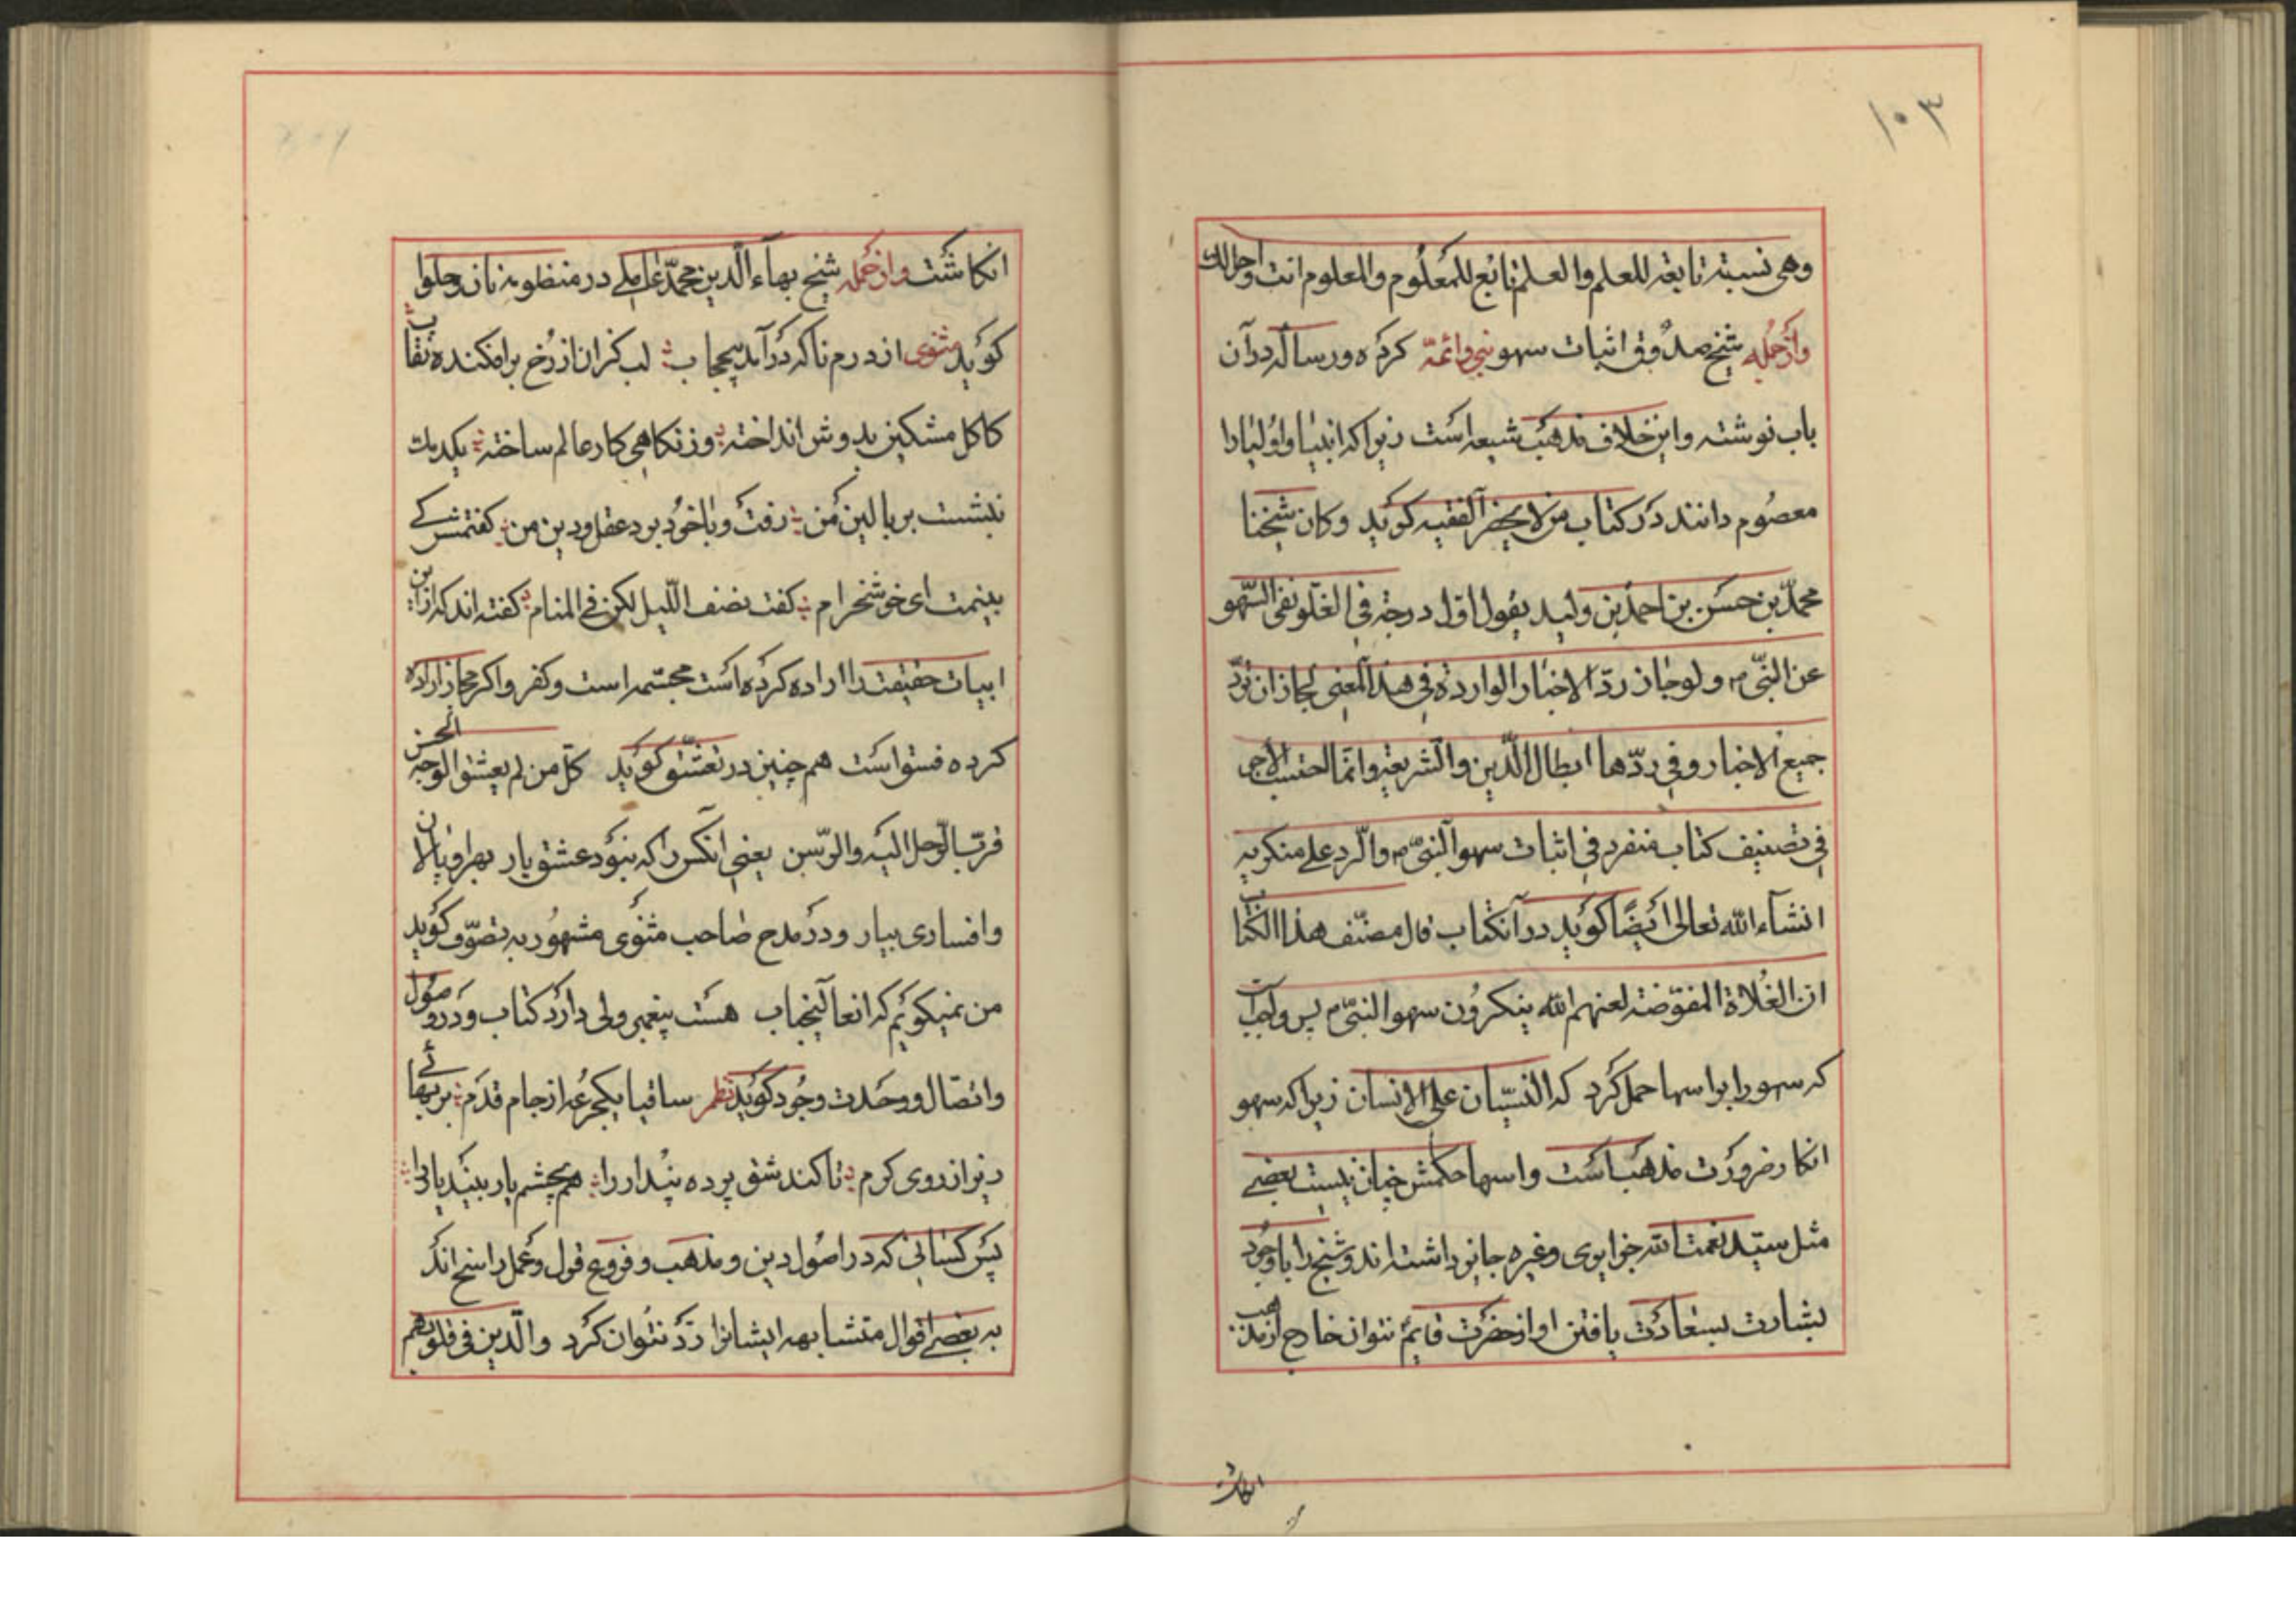 ۱۰۳
وهی نسبته تابعه للعلم والعلم تابع للمعلوم والمعلوم انت واحوالك
وازجمله شیخ صدوق اثبات سهو نبی وائمّه کرده ورساله درآن
باب نوشته واین خلاف مذهب شیعه است زیرا که انبیا واولیا را
معصوم دانند در کتاب من لا یحضر الفقیه کوید وکان شیخنا
محمّد بن حسن بن احمد بن ولید یقول اول درجه فی الغلو نفی السّهو
عن النّبی م ولو جاز ردّ الاخبار الوارده فی هذا المعنی لجاز ان نردّ
جمیع الاخبار وفی ردّها ابطال الدّین والشریعه وانّما احتسب الاجر
فی تصنیف کتاب منفرد فی اثبات سهو النّبی م والرّد علی منکریه
انشآء الله تعالی ایضًا کوید درآنکتاب قال مصنّف هذا الکتاب
ان الغُلاة المفوّضه لعنهم الله ینکرون سهو النّبی م پس واجب است
که سهو را براسها حمل کرد که النسیان علی الانسان زیرا که سهو
انکار ضرورت مذهب است واسها حکمش چنان نیست بعضی
مثل سیّد نعمت الله جزایری وغیره جایز داشته اند وشیخ را باوجود
بشارت بسعادت یافتن او از حضرت قایم نتوان خارج از مذهب
انکاشت
انکاشت وازجمله شیخ بهآء الدین محمّد عاملی در منظومه نان وحلوا
کوید مثنوی از درم ناکه درآمد بیحجاب لب کزان از رخ برافکنده نقاب
کاکل مشکین بدوش انداخته وزنکاهی کار عالم ساخته یکدمك
نشست بر بالین من رفت وبا خود برد عقل ودین من کفتمش کی
بینمت ای خوشخرام کفت نصف اللّیل لکن فی المنام کفته اند که ازاین
ابیات حقیقت را اراده کرده است مجسّمه است وکفر واکر مجاز اراده
کرده فسق است هم چنین در تعشّق کوید کلّ من لم یعشق الوجه الحسن
قرّب الرّحل الیه والرّسن یعنی انکس را که نبود عشق یار بهر او پالان
وافساری بیار ودر مدح صاحب مثنوی مشهور به تصوّف کوید
من نمیکویم که انعالیجناب هست پیغمبر ولی دارد کتاب ودر وصول
واتصال ووحدت وجود کوید نظم ساقیا یکجرعه از جام قدم بر بهائی
ریز از روی کرم تا کند شق پرده پندار را هم بچشم یار بیند یار را
پس کسانی که در اصول دین ومذهب وفروع قول وعمل راسخ اند
به بعضی اقوال متشابهه ایشانرا رد نتوان کرد والّذین فی قلوبهم